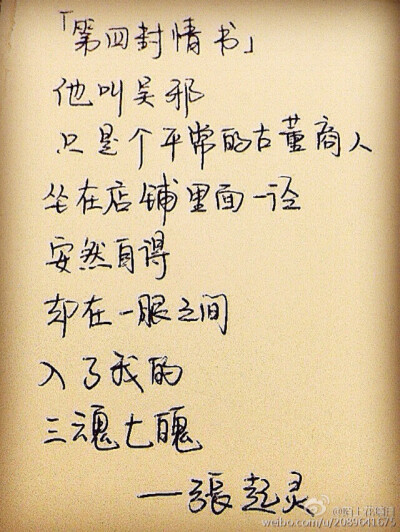 「第四封情书」
他叫吴邪
只是个平常的古董商人
坐在店铺里面一径
安然自得
却在一眼之间
入了我的
三魂七魄
一張起灵
weibo.com/u/2089041675